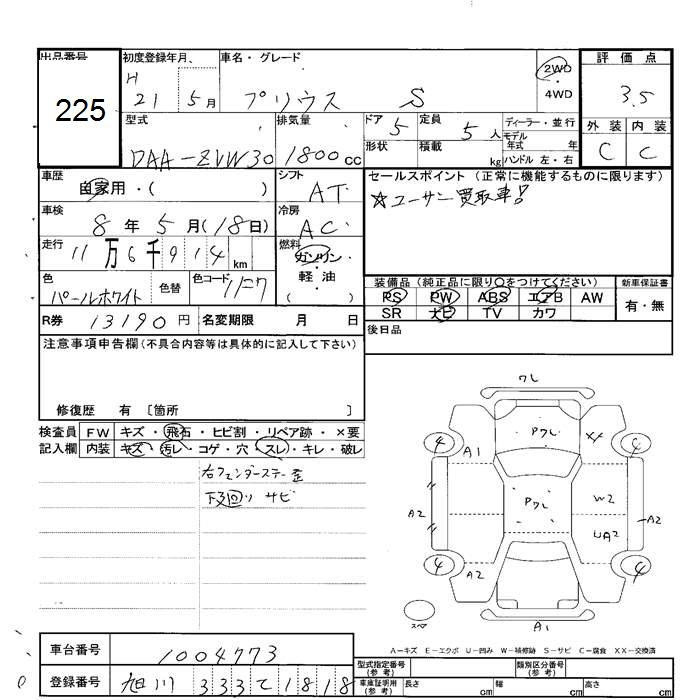 出品番号 初度登録年月 車名・グレード 2WD ・ 4WD 評価点
225 H 21 5月 プリウス S 3.5
型式 排気量 ドア 5 定員 5人 ディーラー・並行 外装 内装
DAA-ZVW30 1800cc 形状 積載 kg モデル年式 年 C C
ハンドル 左・右
車歴 自家用・( ) シフト AT セールスポイント (正常に機能するものに限ります)
☆ユーザー買取車!
車検 8年 5月(18日) 冷房 AC
走行 11万6千914km 燃料 ガソリン・軽油 ( )
色 パールホワイト 色替 色コード
装備品 (純正品に限り○をつけてください) 新車保証書
PS PW ABS エアB AW 有・無
SR ナビ TV カワ
R券 13190円 名変期限 月 日 後日品
注意事項申告欄(不具合内容等は具体的に記入して下さい)
修復歴 有 [箇所 ]
検査員 FW キズ・飛石・ヒビ割・リペア跡・×要
記入欄 内装 キズ・汚レ・コゲ・穴・スレ・キレ・破レ
右フェンダーステー歪
下廻り サビ
ワレ
Pワレ
4 A1 XX
A2 Pワレ W2 A2
UA2
4 A2 4
スペア A1
A-キズ E-エクボ U-凹み W-補修跡 S-サビ C-腐食 XX-交換済
車台番号 1004773 型式指定番号(参考) 類別区分番号(参考)
登録番号 旭川 333 て 1818 車庫証明用(参考) 長さ cm 幅 cm 高さ cm